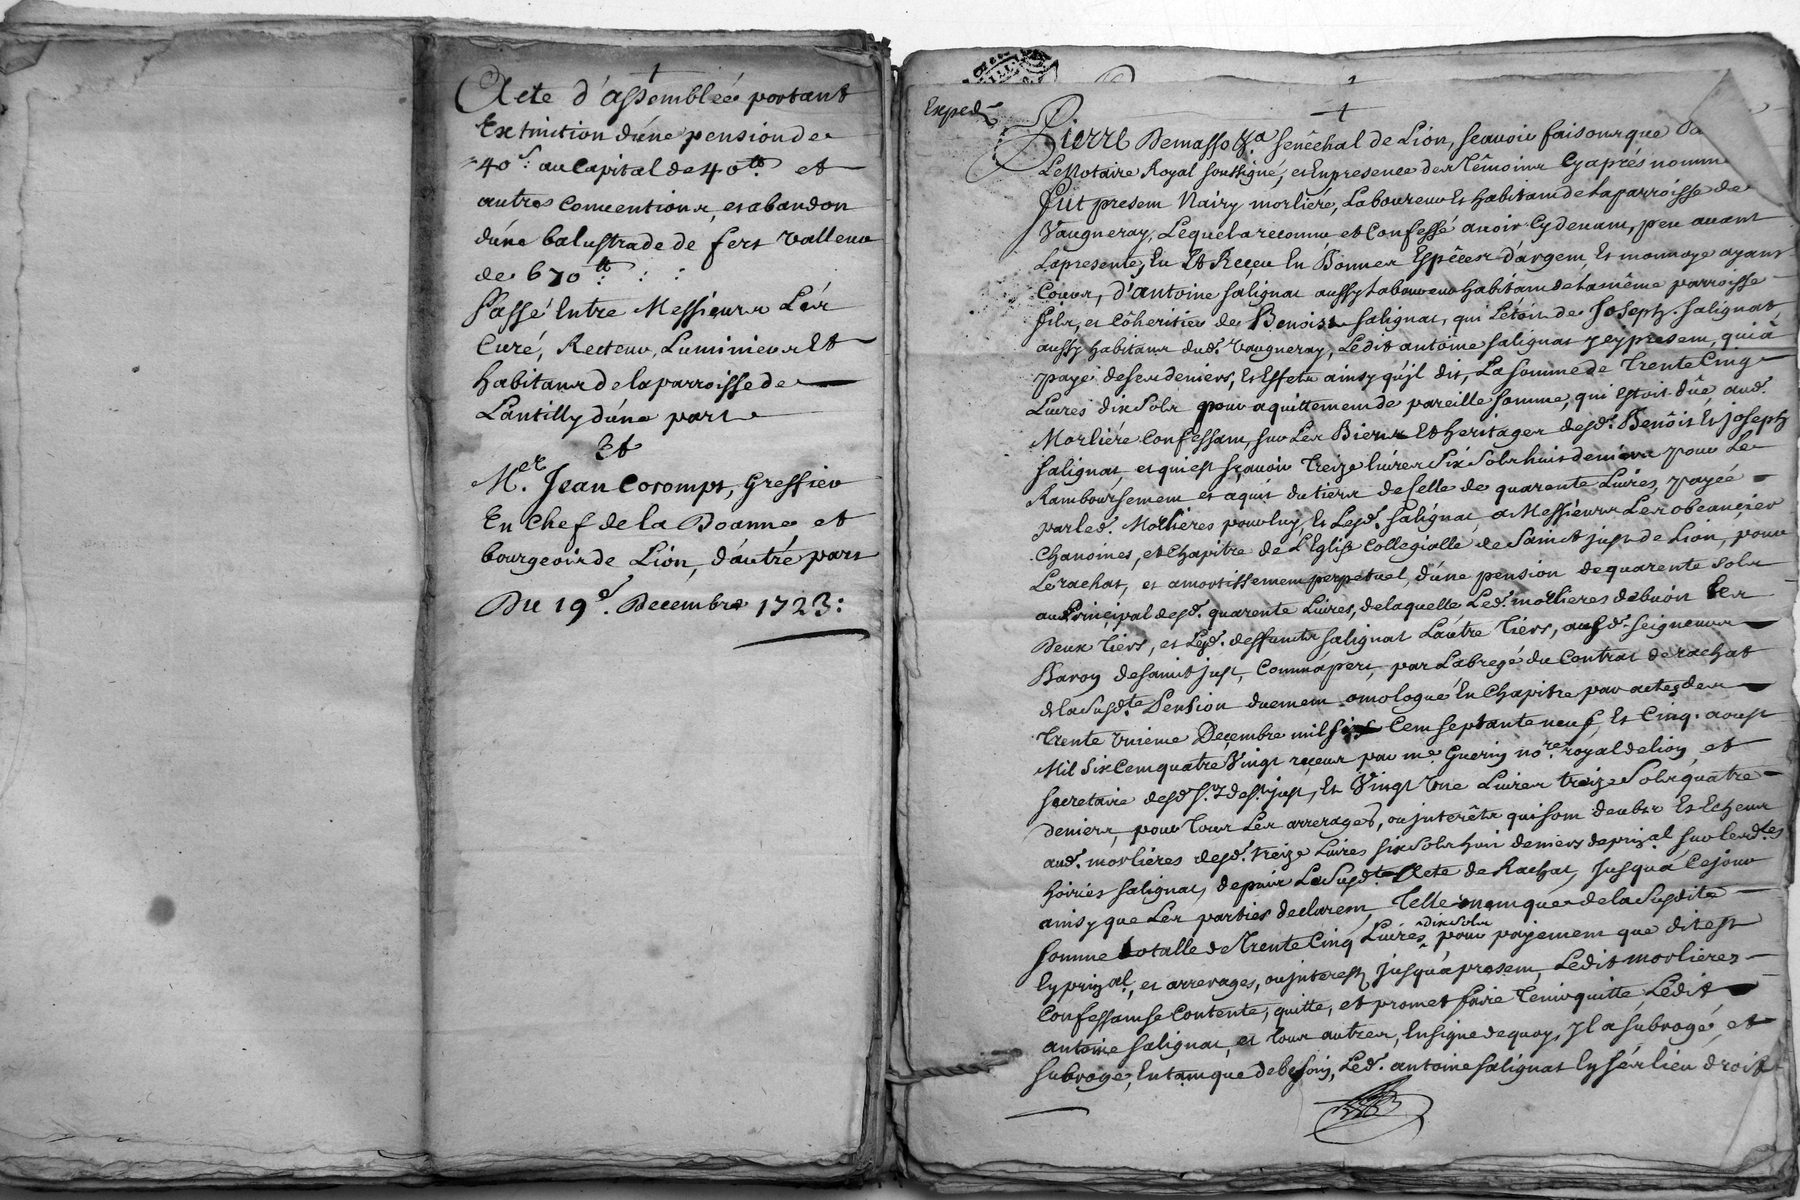 Acte d'assemblée portant
Extinction d'une pension de
40 s. au Capital de 40 tt. et
autres Conventions, et abandon
d'une balustrade de fert valleur
de 670 tt
Passé Entre Messieurs Les
Curé, Recteur, Luminiers Et
habitans de la parroisse de
Lantilly d'une part
Et
Mer. Jean Coromps, Greffier
En Chef de la Doanne et
bourgeois de Lion, d'autre part
Du 19e. Decembre 1723:
Exped.
Pierre Demasso &a Senêchal de Lion, scavoir faisons que
Le Notaire Royal soussigné, et En presence des Têmoins Cy aprés nommé
fut presem Nairy morliéré, Laboureur Et habitam de La parroisse de
Vaugneray, Lequel a reconnu et Confessé avoir Cy devam, peu avant
La presente, Eu Et Reçeu En Bonnes Espêces d'argem Et monnoye ayant
Cours, d'antoine salignat aussy Laboureur habitam de La même parroisse
fils, et Côheritier de Benoist salignat, qui L'étoit de Joseph salignat,
aussy habitans dud. Vaugneray, Ledit antoine salignat jcy presem, qui a
payé de ses deniers, Et Effets ainsy qu'jl dit, La somme de Trente Cinq
Livres dix sols pour aquittemem de pareille somme, qui Estoit dûe, aud.
Morliéré Confessam, sur Les Biens Et heritages desd. Benôit Et Joseph
salignat et qui est sçavoir Treize livres six sols huit deniers pour Le
Remboursemem et aquit du tiers de selle de quarente Livres, payée
par led. Morlieres pour luy, Et Lesd. salignat a Messieurs Les obeancier
Chanoines, et Chapitre de L'Eglise Collegialle de Sainct just de Lion, pour
Le rachat, et amortissemem perpetuel, d'une pension de quarente sols
au Principal desd. quarente Livres, de laquelle Led. morlieres debvoit Les
Deux Tiers, et Lesd. deffuncts salignat L'autre Tiers, ausd. seigneurs
Baron de sainct just, Comm'apert, par L'abregé du Contrat de rachat
de la Susdte. Pension duemem omologué En Chapitre par actes des
Trente Unieme Decembre mil six Cem septante neuf, Et Cinq. aoust
Mil Six Cem quatre Vingt reçeus par me. Guerin nore. royal de lion, et
secretaire desd. srs. de st. just, Et Vingt Une Livres treize Sols quatre
deniers, pour Tous Les arrerages, ou jnterêts qui som deubs Et Echeus
aud. morliéres desd. treize Livres six Sols huit deniers de prinal. sur lesdtes
hoiries salignat, depuis La Susdte. Acte de Rachat, Jusqu'a Ce jour
ainsy que Les parties declarem, Tellemem que de la Susdite
somme totalle de Trente Cinq Livres dix sols pour payement que dit est
En prinal., et arrerages, ou jnterests jusqu'a presem, Ledit morlieres
Confessam se Contente, quitte, et promet faire Tenir quitte, Ledit
antoine salignat, et tous autres, En signe de quoy, Jl a subrogé, et
subroge, En tam que de besoin, Led. antoine salignat En ses lieu droit